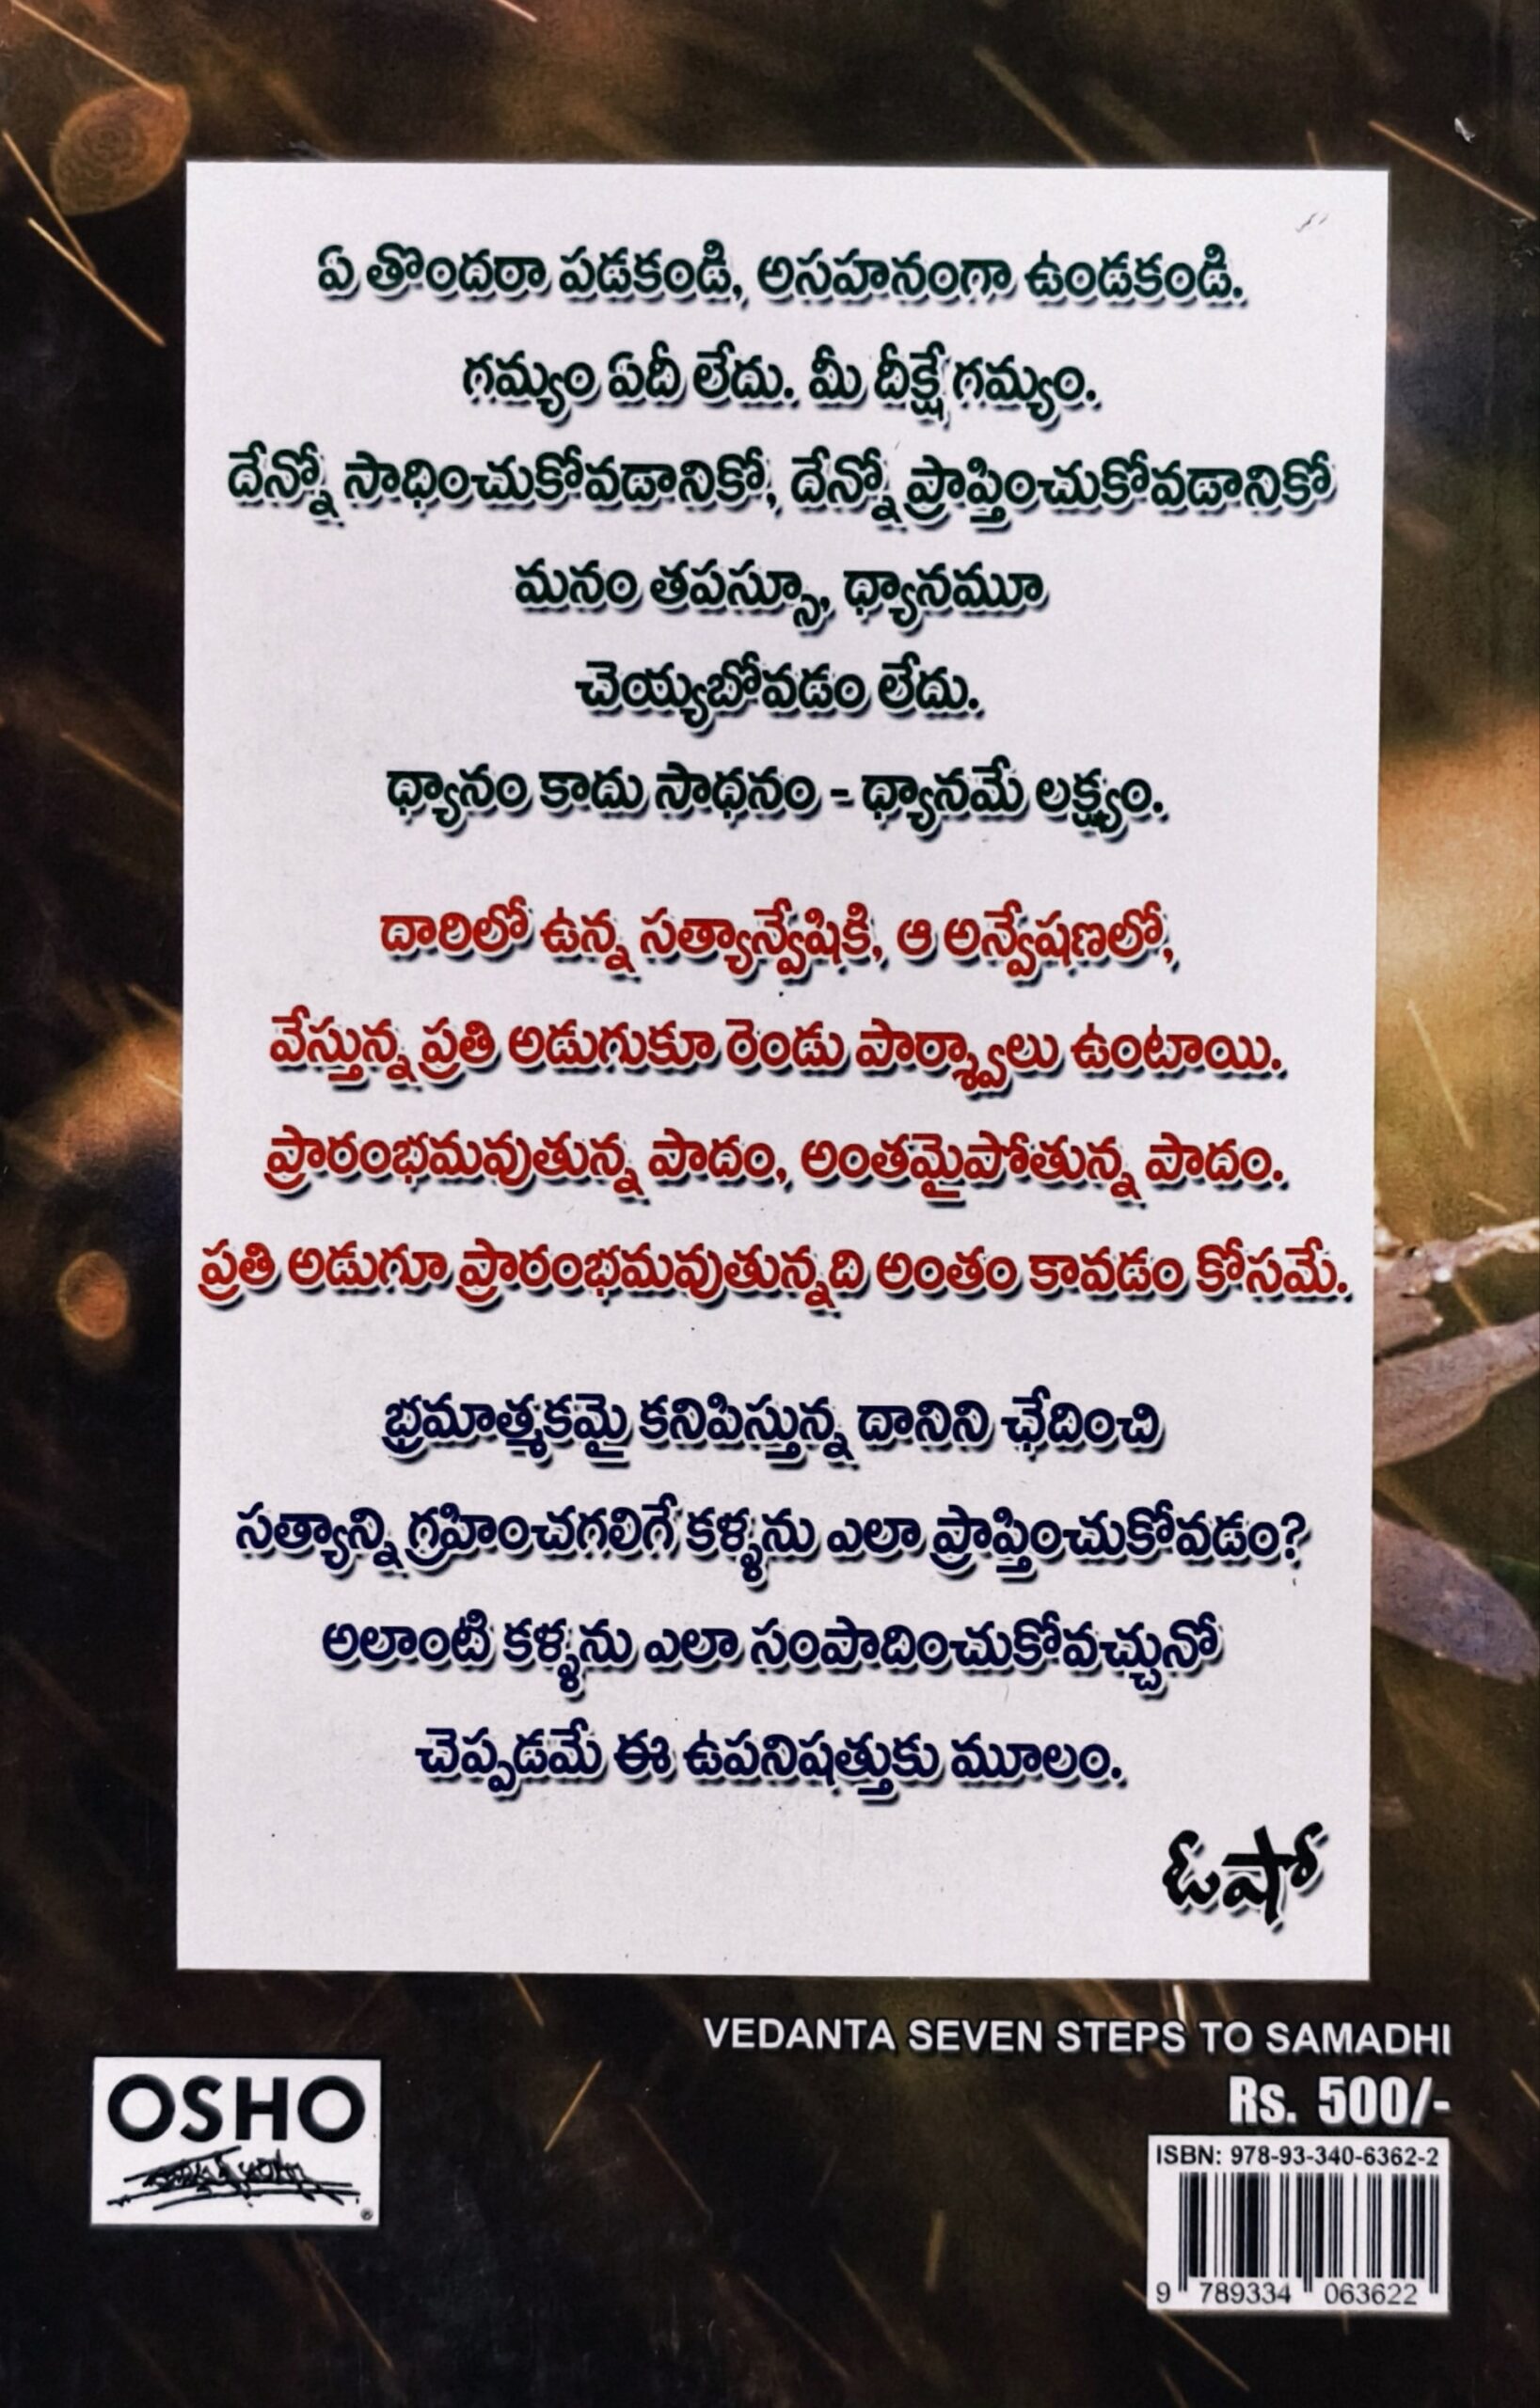 ఏ తొందరా పడకండి, అసహనంగా ఉండకండి.
గమ్యం ఏదీ లేదు. మీ దీక్షే గమ్యం.
దేన్నో సాధించుకోవడానికో, దేన్నో ప్రాప్తించుకోవడానికో
మనం తపస్సూ, ధ్యానమూ
చెయ్యబోవడం లేదు.
ధ్యానం కాదు సాధనం - ధ్యానమే లక్ష్యం.
దారిలో ఉన్న సత్యాన్వేషికి, ఆ అన్వేషణలో,
వేస్తున్న ప్రతి అడుగుకూ రెండు పార్శ్వాలు ఉంటాయి.
ప్రారంభమవుతున్న పాదం, అంతమైపోతున్న పాదం.
ప్రతి అడుగూ ప్రారంభమవుతున్నది అంతం కావడం కోసమే.
భ్రమాత్మకమై కనిపిస్తున్న దానిని ఛేదించి
సత్యాన్ని గ్రహించగలిగే కళ్ళను ఎలా ప్రాప్తించుకోవడం?
అలాంటి కళ్ళను ఎలా సంపాదించుకోవచ్చునో
చెప్పడమే ఈ ఉపనిషత్తుకు మూలం.
ఓషో
VEDANTA SEVEN STEPS TO SAMADHI
Rs. 500/-
OSHO
®
ISBN: 978-93-340-6362-2
9 789334 063622